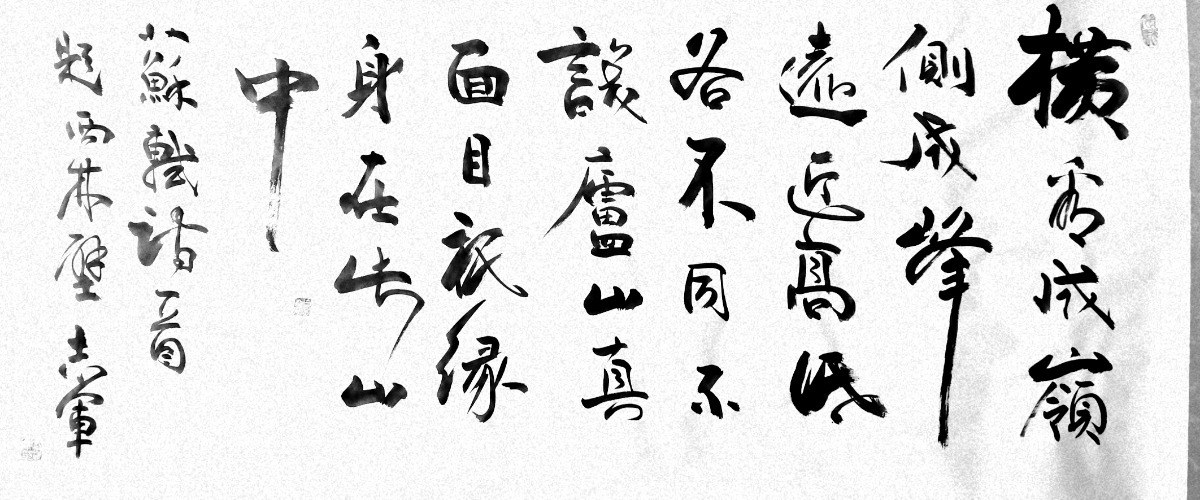 橫看成嶺
側成峰
遠近高低
各不同不
識廬山真
面目祇緣
身在此山
中
蘇軾詩一首
題西林壁 志軍